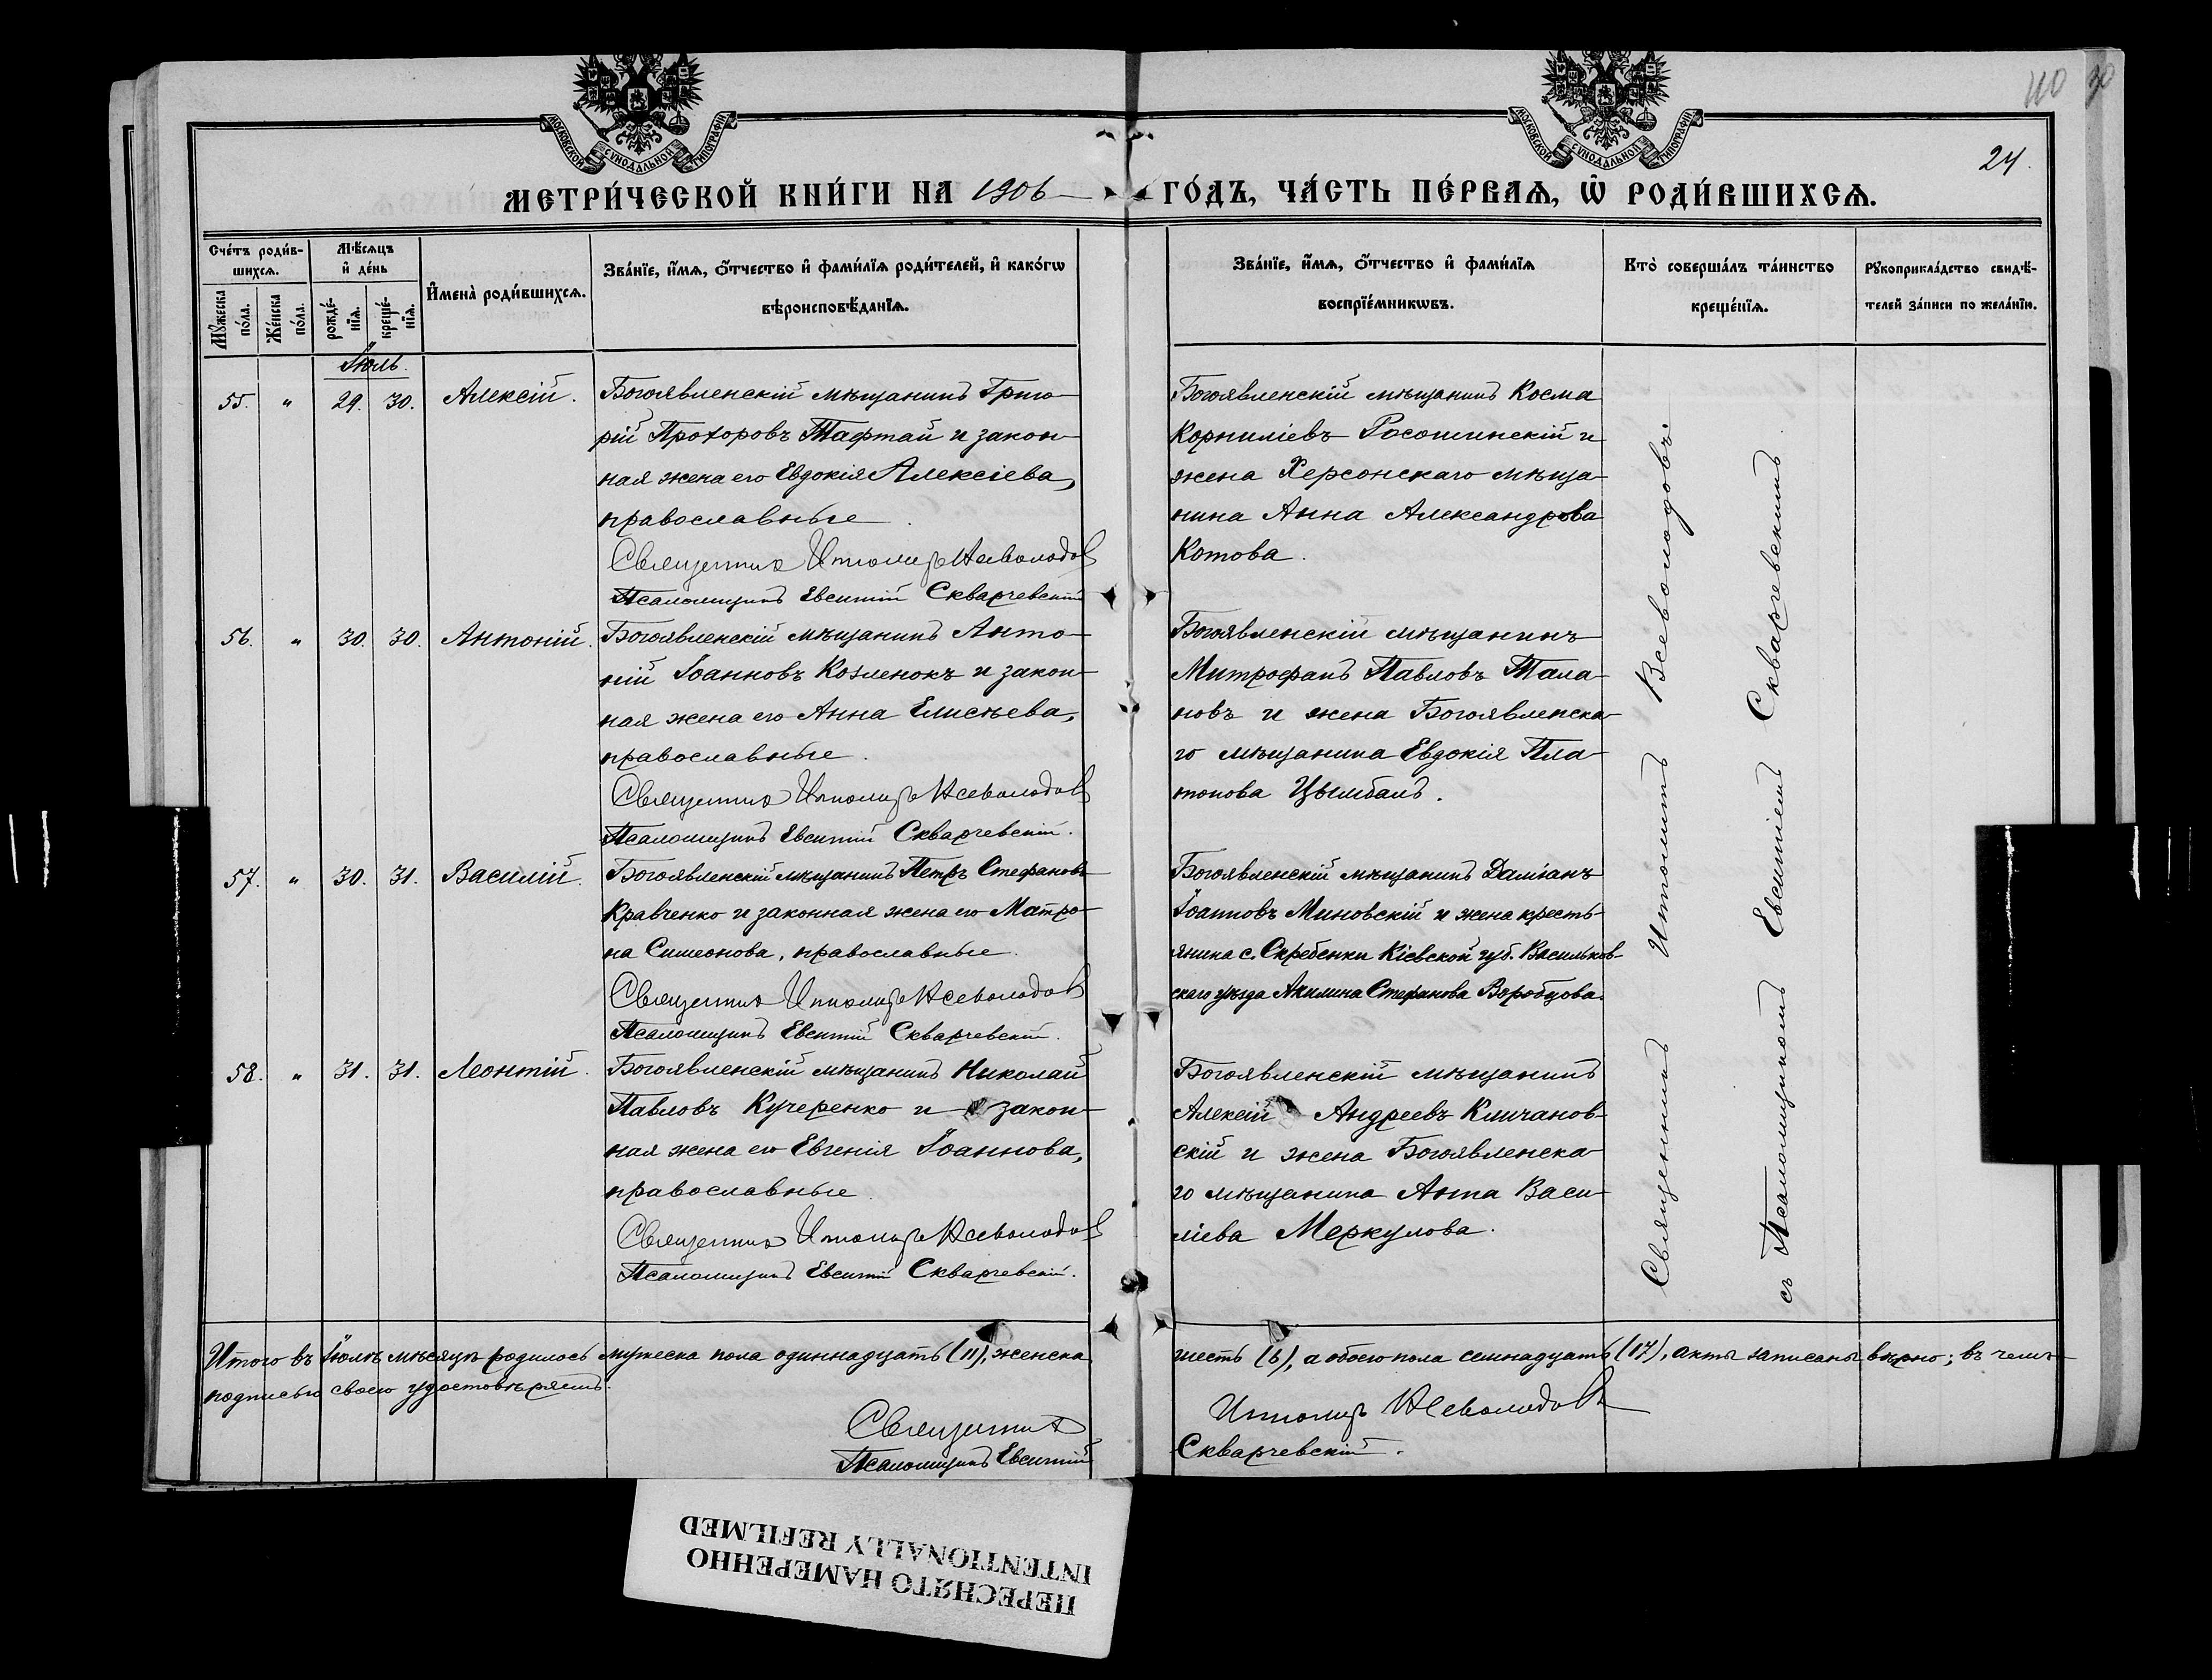 110 30
24.
МОСКОВСКОЙ СѴНОДАЛЬНОЙ ТИПОГРАФІИ
МОСКОВСКОЙ СѴНОДАЛЬНОЙ ТИПОГРАФІИ
МЕТРИ́ЧЕСКОЙ КНИ́ГИ НА 1906 ГО́ДЪ, ЧА́СТЬ ПЕ́РВАѦ, Ѡ҆ РОДИ́ВШИХСѦ.
Сче́тъ роди́в-
шихсѧ.
Мꙋ́жеска по́ла.
Же́нска по́ла.
Мѣ́сѧцъ
и҆ де́нь
рожде́-
нїѧ.
креще́-
нїѧ.
И҆мена̀ роди́вшихсѧ.
Зва́нїе, и҆́мѧ, ѻ҆́тчество и҆ фами́лїѧ роди́телей, и҆ како́гѡ
вѣроисповѣ́данїѧ.
Зва́нїе, и҆́мѧ, ѻ҆́тчество и҆ фами́лїѧ
воспрїе́мникѡвъ.
Кто̀ соверша́лъ та́инство
креще́нїѧ.
Рꙋкоприкла́дство свидѣ́-
телей за́писи по жела́нїю.
Іюль.
55. " 29. 30. Алексій.
Богоявленскій мѣщанинъ Григо-
рій Прохоровъ Тафтай и закон-
ная жена его Евдокія Алексіева,
православные.
Священникъ Ипполитъ Всеволодовъ
Псаломщикъ Евсигній Скварчевскій
Богоявленскій мѣщанинъ Косма
Корниліевъ Росошинскій и
жена Херсонскаго мѣща-
нина Анна Александрова
Котова.
56. " 30. 30. Антоній.
Богоявленскій мѣщанинъ Анто-
ній Іоанновъ Козленокъ и закон-
ная жена его Анна Елисѣева,
православные.
Священникъ Ипполитъ Всеволодовъ
Псаломщикъ Евсигній Скварчевскій.
Богоявленскій мѣщанинъ
Митрофанъ Павловъ Тала-
новъ и жена Богоявленска-
го мѣщанина Евдокія Пла-
тонова Цымбалъ.
57. " 30. 31. Василій.
Богоявленскій мѣщанинъ Петръ Стефановъ
Кравченко и законная жена его Матро-
на Симеонова, православные.
Священникъ Ипполитъ Всеволодовъ
Псаломщикъ Евсигній Скварчевскій.
Богоявленскій мѣщанинъ Даміанъ
Іоанновъ Миновскій и жена кресть-
янина с. Скребенки Кіевской губ. Васильков-
скаго уѣзда Акилина Стефанова Воробцова.
58. " 31. 31. Леонтій.
Богоявленскій мѣщанинъ Николай
Павловъ Кучеренко и закон-
ная жена его Евгенія Іоаннова,
православные.
Священникъ Ипполитъ Всеволодовъ
Псаломщикъ Евсигній Скварчевскій.
Богоявленскій мѣщанинъ
Алексій Андреевъ Кличанов-
скій и жена Богоявленска-
го мѣщанина Анна Васи-
ліева Меркулова.
Священникъ Ипполитъ Всеволодовъ.
съ Псаломщикомъ Евсигніемъ Скварчевскимъ.
Итого въ Іюлѣ мѣсяцѣ родилось мужеска пола одиннадцать (11), женска шесть (6), а обоего пола семнадцать (17), акты записаны вѣрно; въ чемъ
подписью своею удостовѣряемъ.
Священникъ Ипполитъ Всеволодовъ
Псаломщикъ Евсигній Скварчевскій.
ПЕРЕСНЯТО НАМЕРЕННО
INTENTIONALLY REFILMED